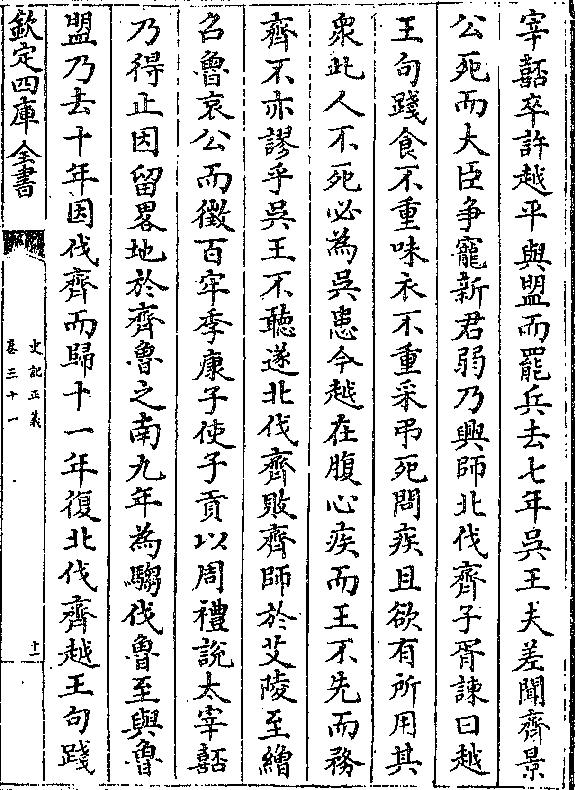 宰嚭卒許越平與盟而罷兵去七年吳王夫差聞齊景
公死而大臣争寵新君弱乃興師北伐齊子胥諫曰越
王句踐食不重味衣不重采弔死問疾且欲有所用其
衆此人不死必為吳患今越在腹心疾而王不先而務
齊不亦謬乎吳王不聽遂北伐齊敗齊師於艾陵至繒
召魯哀公而徵百牢季康子使子貢以周禮說太宰嚭
乃得止因留畧地於齊魯之南九年為騶伐魯至與魯
盟乃去十年因伐齊而歸十一年復北伐齊越王句踐
欽定四庫全書
史記正義
卷三十一
十